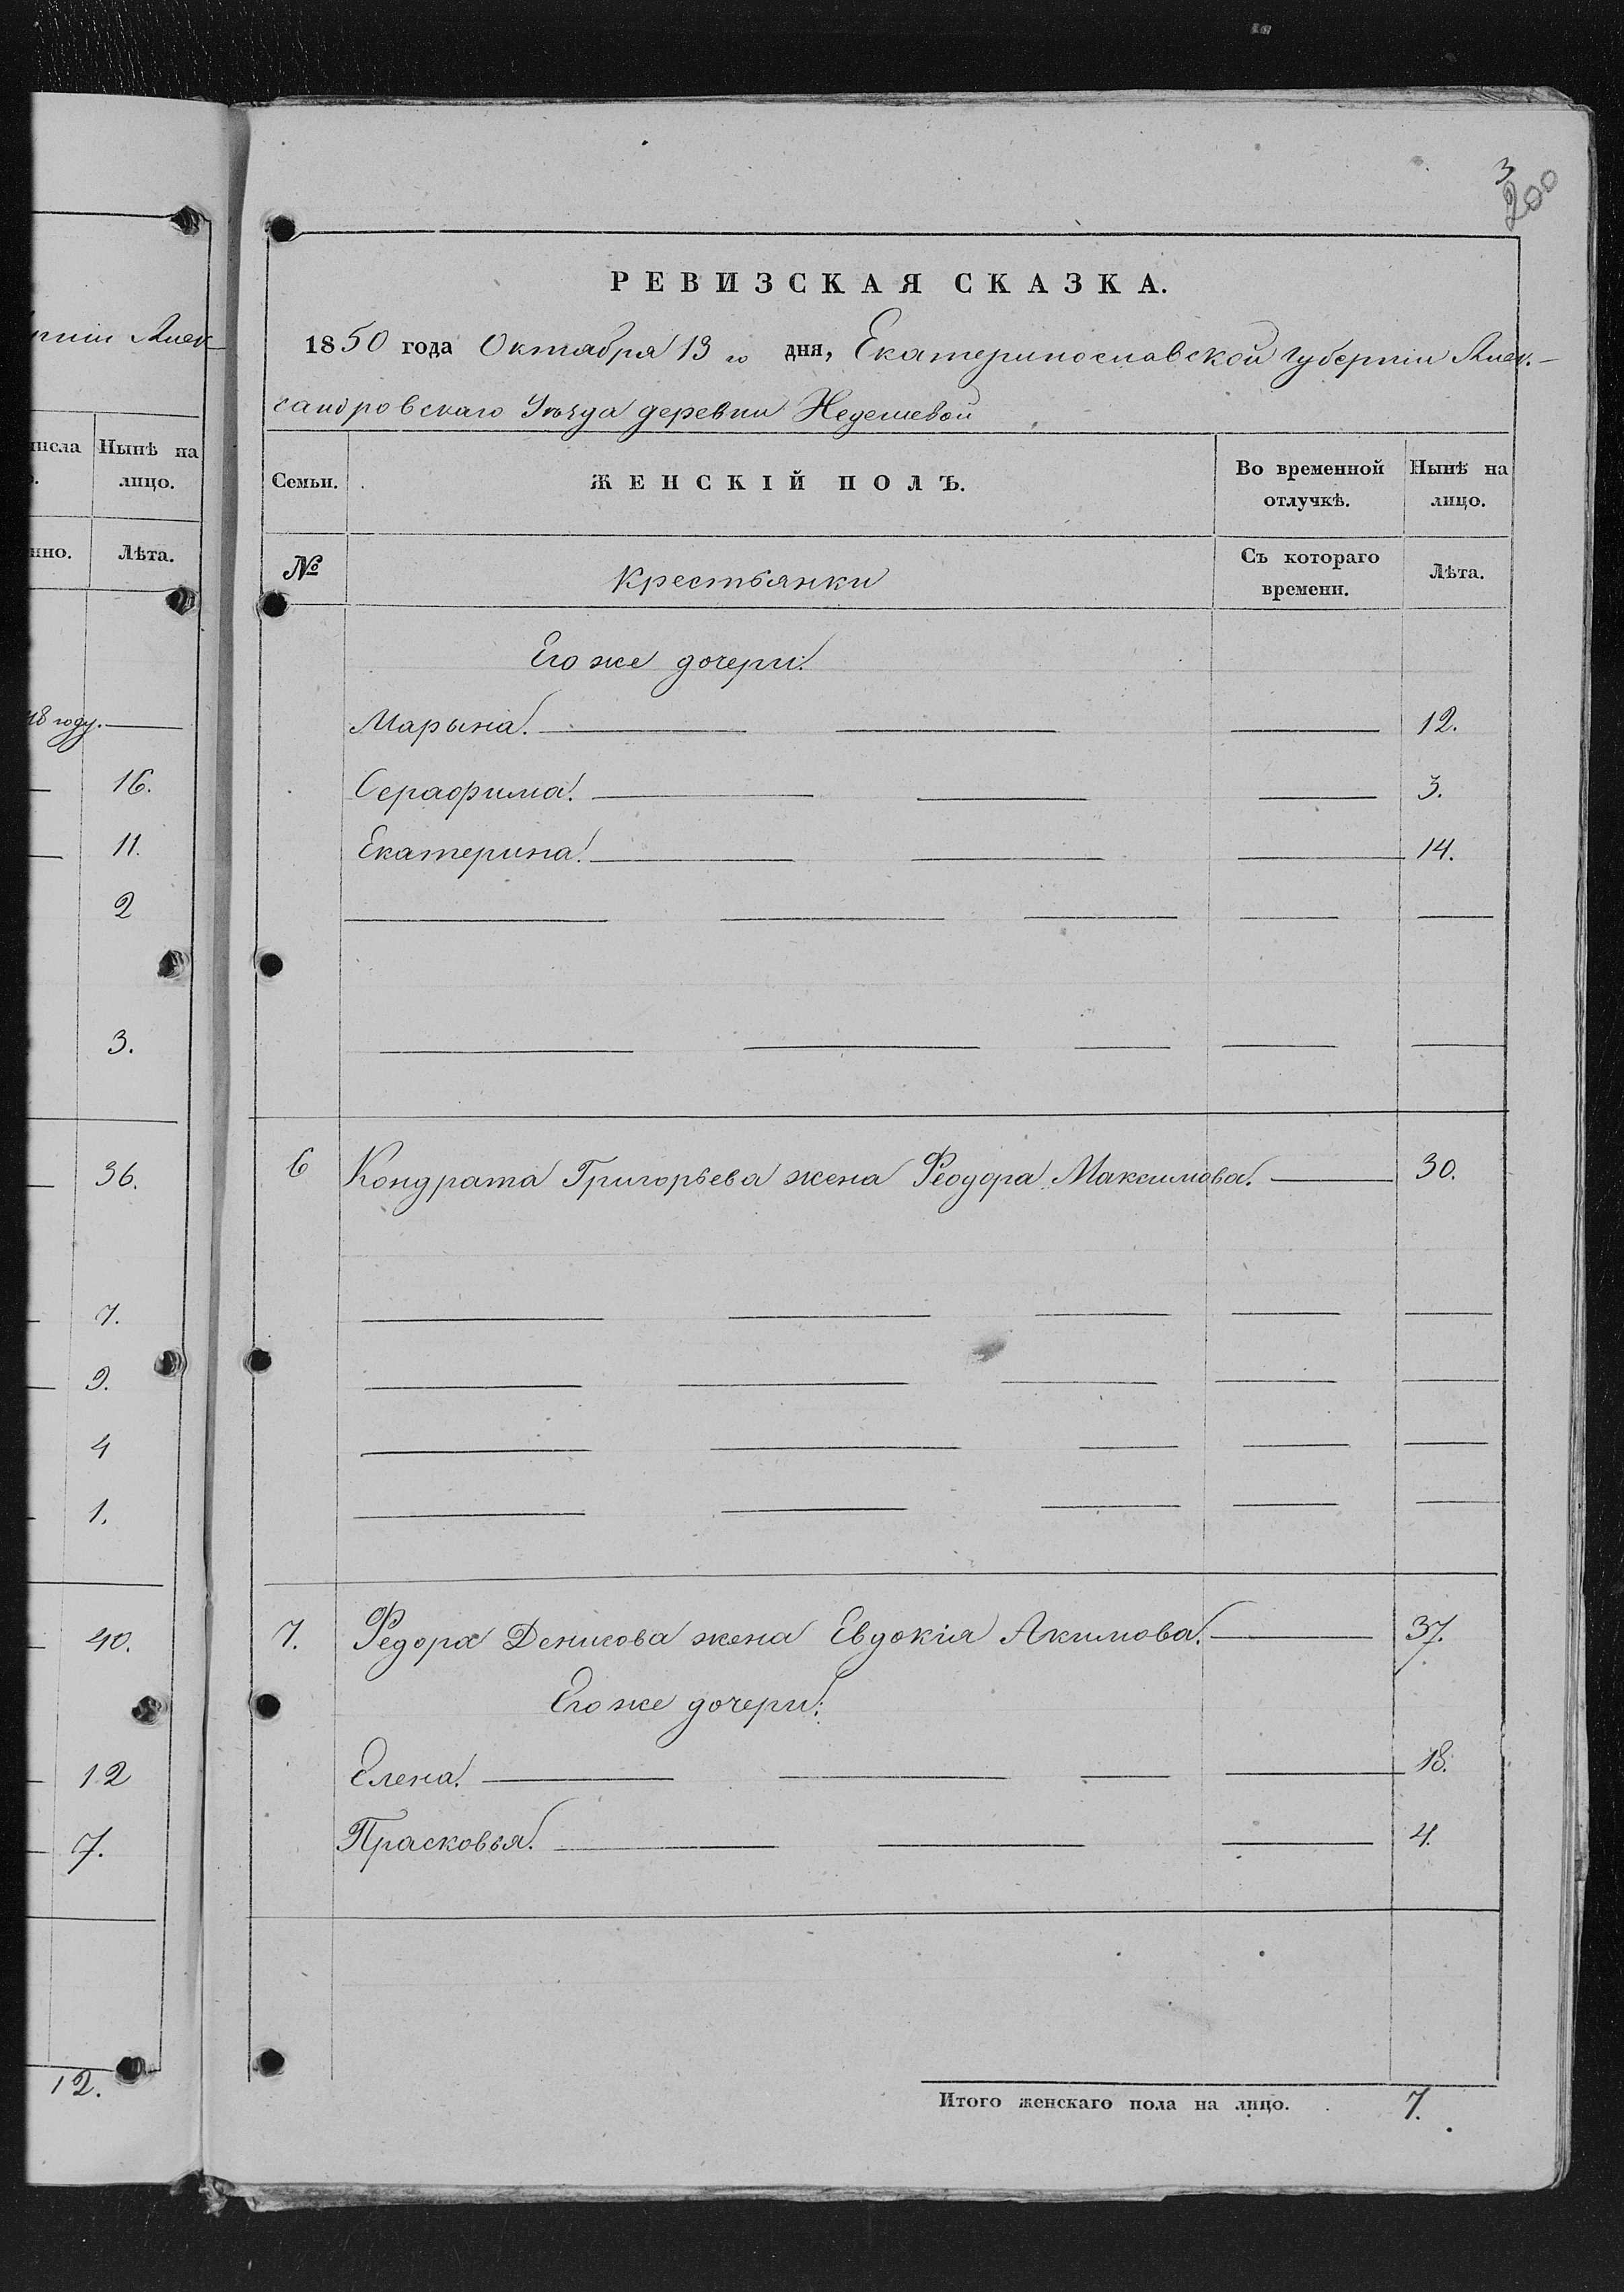 3
200
РЕВИЗСКАЯ СКАЗКА.
1850 года Октября 13 го дня, Екатеринославской губерніи Алек-
сандровскаго Уѣзда деревни Недешевой
Семьи. ЖЕНСКІЙ ПОЛЪ. Во временной отлучкѣ. Нынѣ на лицо.
№ Крестьянки Съ котораго времени. Лѣта.
Его же дочери:
Марына. 12.
Серафима. 3.
Екатерина. 14.
6 Кондрата Григорьева жена Феодора Максимова. 30.
7. Федора Денисова жена Евдокія Акимова. 37.
Его же дочери:
Елена. 18.
Прасковья. 4.
Итого женскаго пола на лицо. 7.
Алек
Нынѣ на
лицо.
Лѣта.
году.
16.
11.
2
3.
36.
7.
9.
4
1.
40.
12
7.
12.